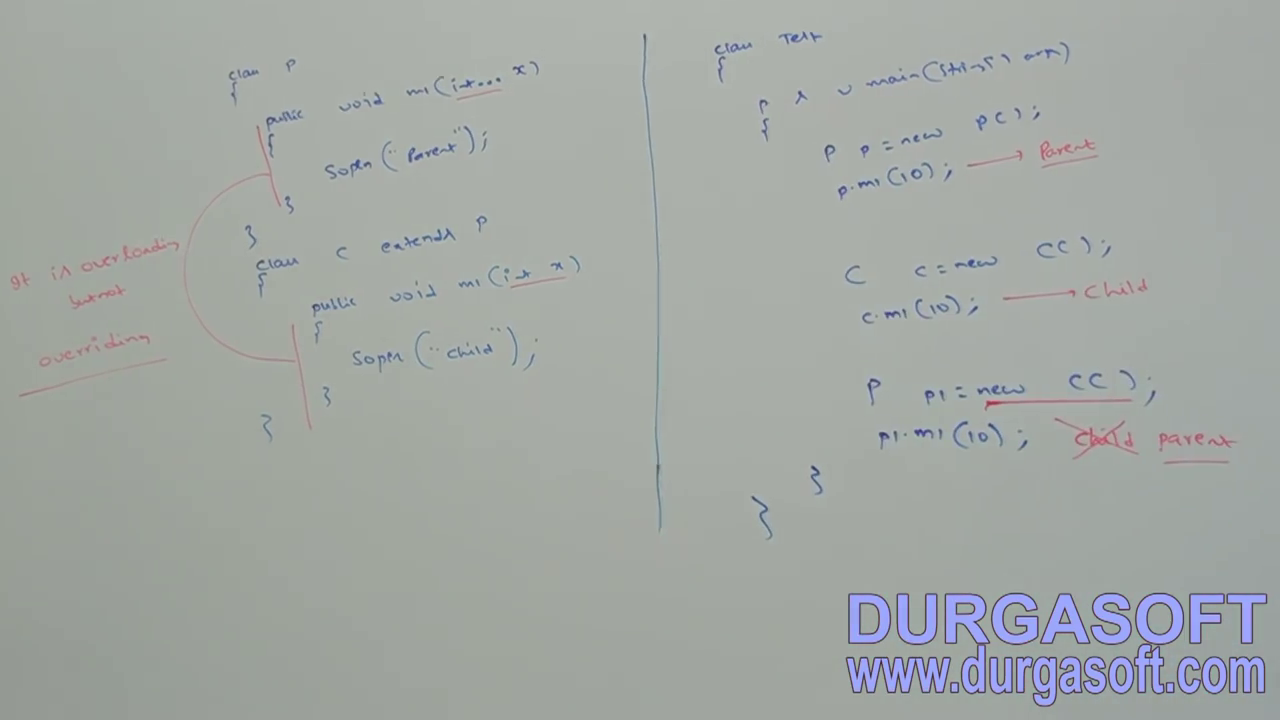 class P
{
public void m1(int... x)
{
Sopln("Parent");
}
}
class C extends P
{
public void m1(int x)
{
Sopln("child");
}
}
It is overloading
but not
overriding
class Test
{
p s v main(String[] args)
{
P p = new P();
p.m1(10); → Parent
C c = new C();
c.m1(10); → child
P p1 = new C();
p1.m1(10); child parent
}
}
DURGASOFT
www.durgasoft.com